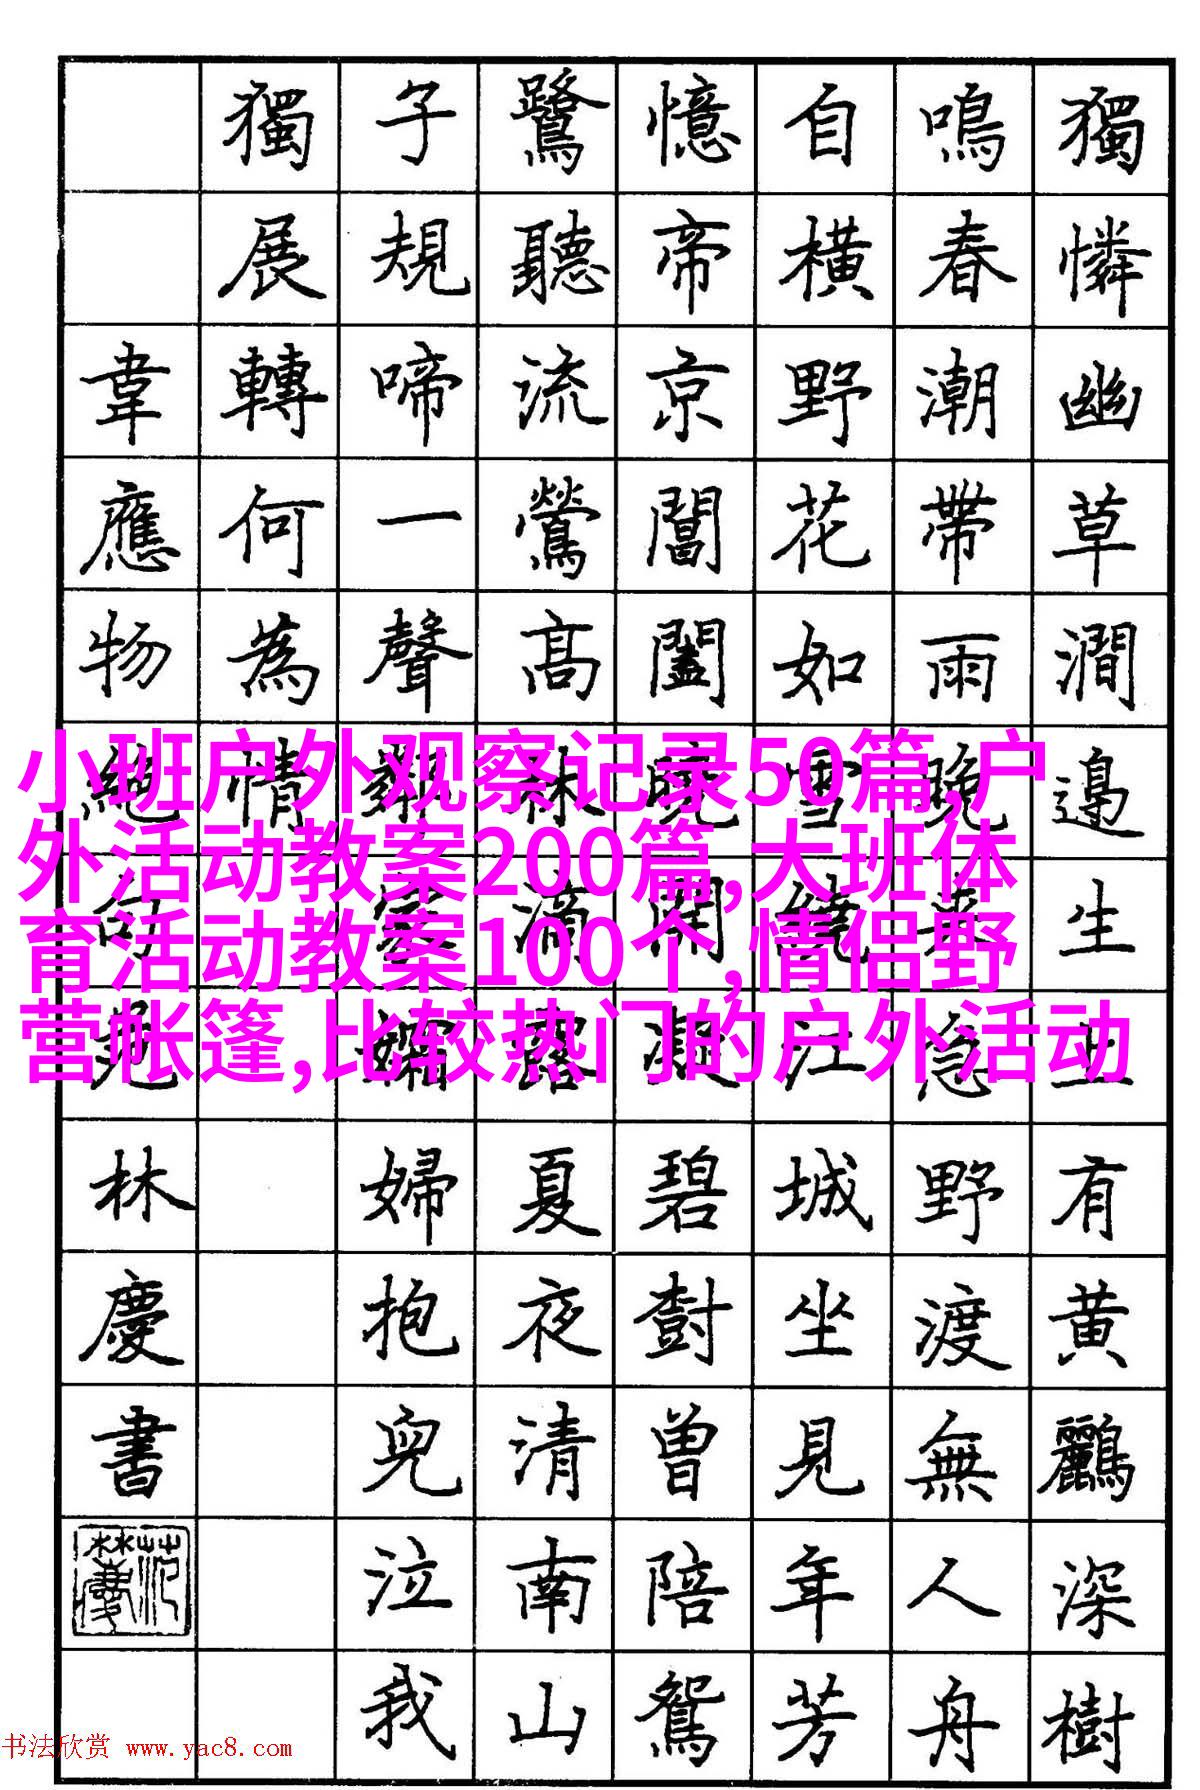 獨憐幽草澗邊生上有黄鸝深樹
鳴春潮帶雨晚來急野渡無人舟
自橫野花如雪繞江城坐見年芳
憶帝京閶闔曉開凝碧樹曾陪鴛
鷺聽流鶯高林滴露夏夜清南山
子規啼一聲鄰家孀婦抱兒泣我
獨展轉何為情
韋應物絕句范林慶書
范林慶
小班户外观察记录50篇,户
外活动教案200篇,大班体
育活动教案100个,情侣野
营帐篷,比较热门的户外活动
书法欣赏 www.yac8.com